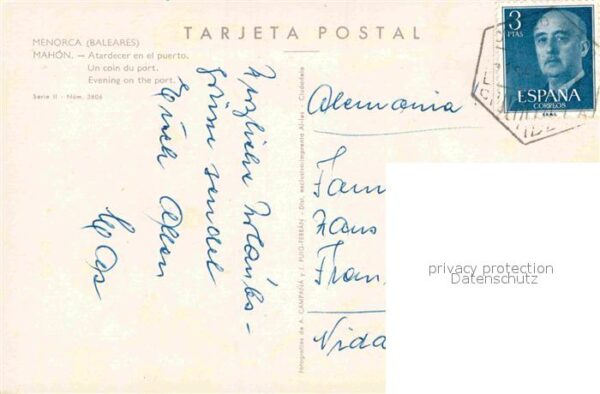 TARJETA POSTAL
MENORCA (BALEARES)
MAHÓN. — Atardecer en el puerto.
Un coin du port.
Evening on the port.
Serie II - Núm. 3606
Herzliche Urlaubs-
grüsse sendet
Euch Allen
Fotografías de A. CAMPAÑA y J. PUIG-FERRÁN - Dist. exclusivo:Imprenta Al-les - Ciudadela
3
PTAS
ESPAÑA
CORREOS
Alemania
Fam
Hans
Fran
Nida
privacy protection
Datenschutz